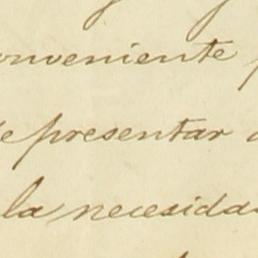 conveniente
representar
la necesida